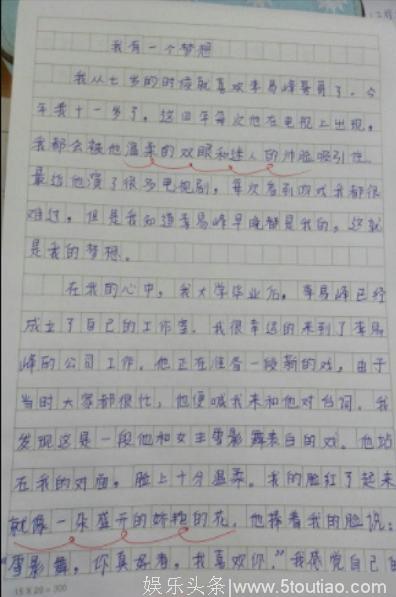 我有一个梦想
我从七岁的时候就喜欢李易峰哥哥了。今
年我十一岁了，这四年每次他在电视上出现，
我都会被他温柔的双眼和迷人的帅脸吸引住。
最近他演了很多电视剧，每次看到游戏我都很
难过，但是我知道李易峰早晚都是我的，这就
是我的梦想。
在我的心中，我大学毕业后，李易峰已经
成立了自己的工作室。我很幸运的来到了李易
峰的公司工作。他正在准备一段新的戏，由于
当时大家都很忙，他便喊我来和他对台词。我
发现这是一段他和女主雪影舞表白的戏。他站
在我的对面，脸上十分温柔。我的脸红了起来
就像一朵盛开的娇艳的花。他捧着我的脸说：
“雪影舞，你真好看，我喜欢你。”我感觉自己的
15 X 20 = 300
娱乐头条|www.5toutiao.com